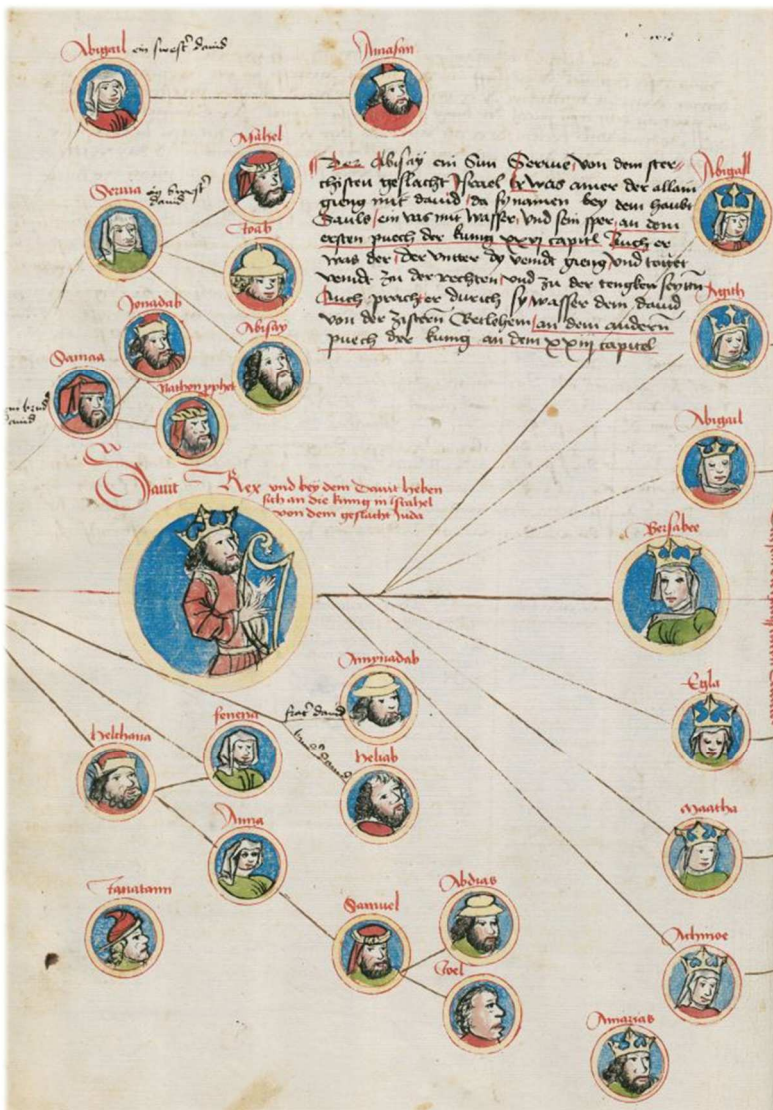 Abigail ein swest' dauid
Amasan
Mahel
Serrua ein swest'
dauid
Joab
Abisay
Jonadab
Samaa
Nathen pphet
Der Abisay ein Sun Serrue, von dem ster-
chisten geslacht Israel Er was ainer der allain
gieng mit dauid, da sy namen bey dem haubt
Sauls, ein vas mit wasser, und sein sper, an dem
ersten puech der kunig xxvj capitl Auch er
was der, der vnter dy veindt gieng, vnd totet
veindt zu der rechten, vnd zu der tengken seytten
Auch prach er durich sy wasser dem dauid
von der zistern Betlehem, an dem andern
puech der kunig an dem xxiij capitel
Abigall
Agith
Abigail
Dauit Rex vnd bey dem Dauit heben
sich an die kunig in Israhel
von dem geslacht Juda
Bersabee
Amynadab
frat' dauid
Egla
Helchana
fenena
Heliab
Maatha
Anna
Samuel
Abdias
Joel
Achinoe
Amarias